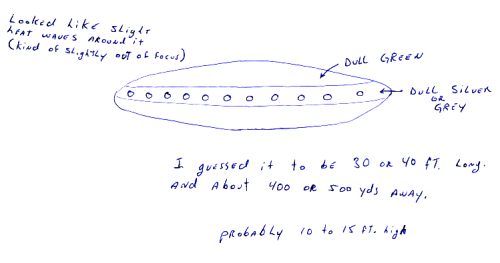 Looked Like slight
heat waves around it
(kind of slightly out of focus)
Dull Green
Dull Silver
or
Grey
I guessed it to be 30 or 40 ft. long.
and about 400 or 500 yds away.
probably 10 to 15 ft. high